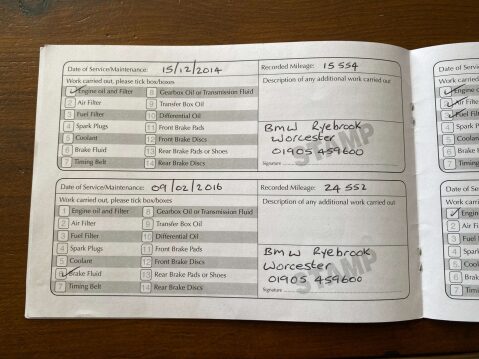 Date of Service/Maintenance: 15/12/2014 Recorded Mileage: 15 554
Work carried out, please tick box/boxes Description of any additional work carried out
1 Engine oil and Filter 8 Gearbox Oil or Transmission Fluid
2 Air Filter 9 Transfer Box Oil
3 Fuel Filter 10 Differential Oil
4 Spark Plugs 11 Front Brake Pads
5 Coolant 12 Front Brake Discs
6 Brake Fluid 13 Rear Brake Pads or Shoes
7 Timing Belt 14 Rear Brake Discs
BMW Ryebrook
Worcester
01905 459600
STAMP
Signature
Date of Service/Maintenance: 09/02/2016 Recorded Mileage: 24 552
Work carried out, please tick box/boxes Description of any additional work carried out
1 Engine oil and Filter 8 Gearbox Oil or Transmission Fluid
2 Air Filter 9 Transfer Box Oil
3 Fuel Filter 10 Differential Oil
4 Spark Plugs 11 Front Brake Pads
5 Coolant 12 Front Brake Discs
6 Brake Fluid 13 Rear Brake Pads or Shoes
7 Timing Belt 14 Rear Brake Discs
BMW Ryebrook
Worcester
01905 459600
STAMP
Signature
Date of Servic
Work carried o
Engine
Air Filt
Fuel Fi
4 Spark P
5 Coola
Brake
7 Timing
Date of Servi
Work carried
Engin
2 Air Fil
3 Fuel F
4 Spark
5 Coo
Brake
7 Timin